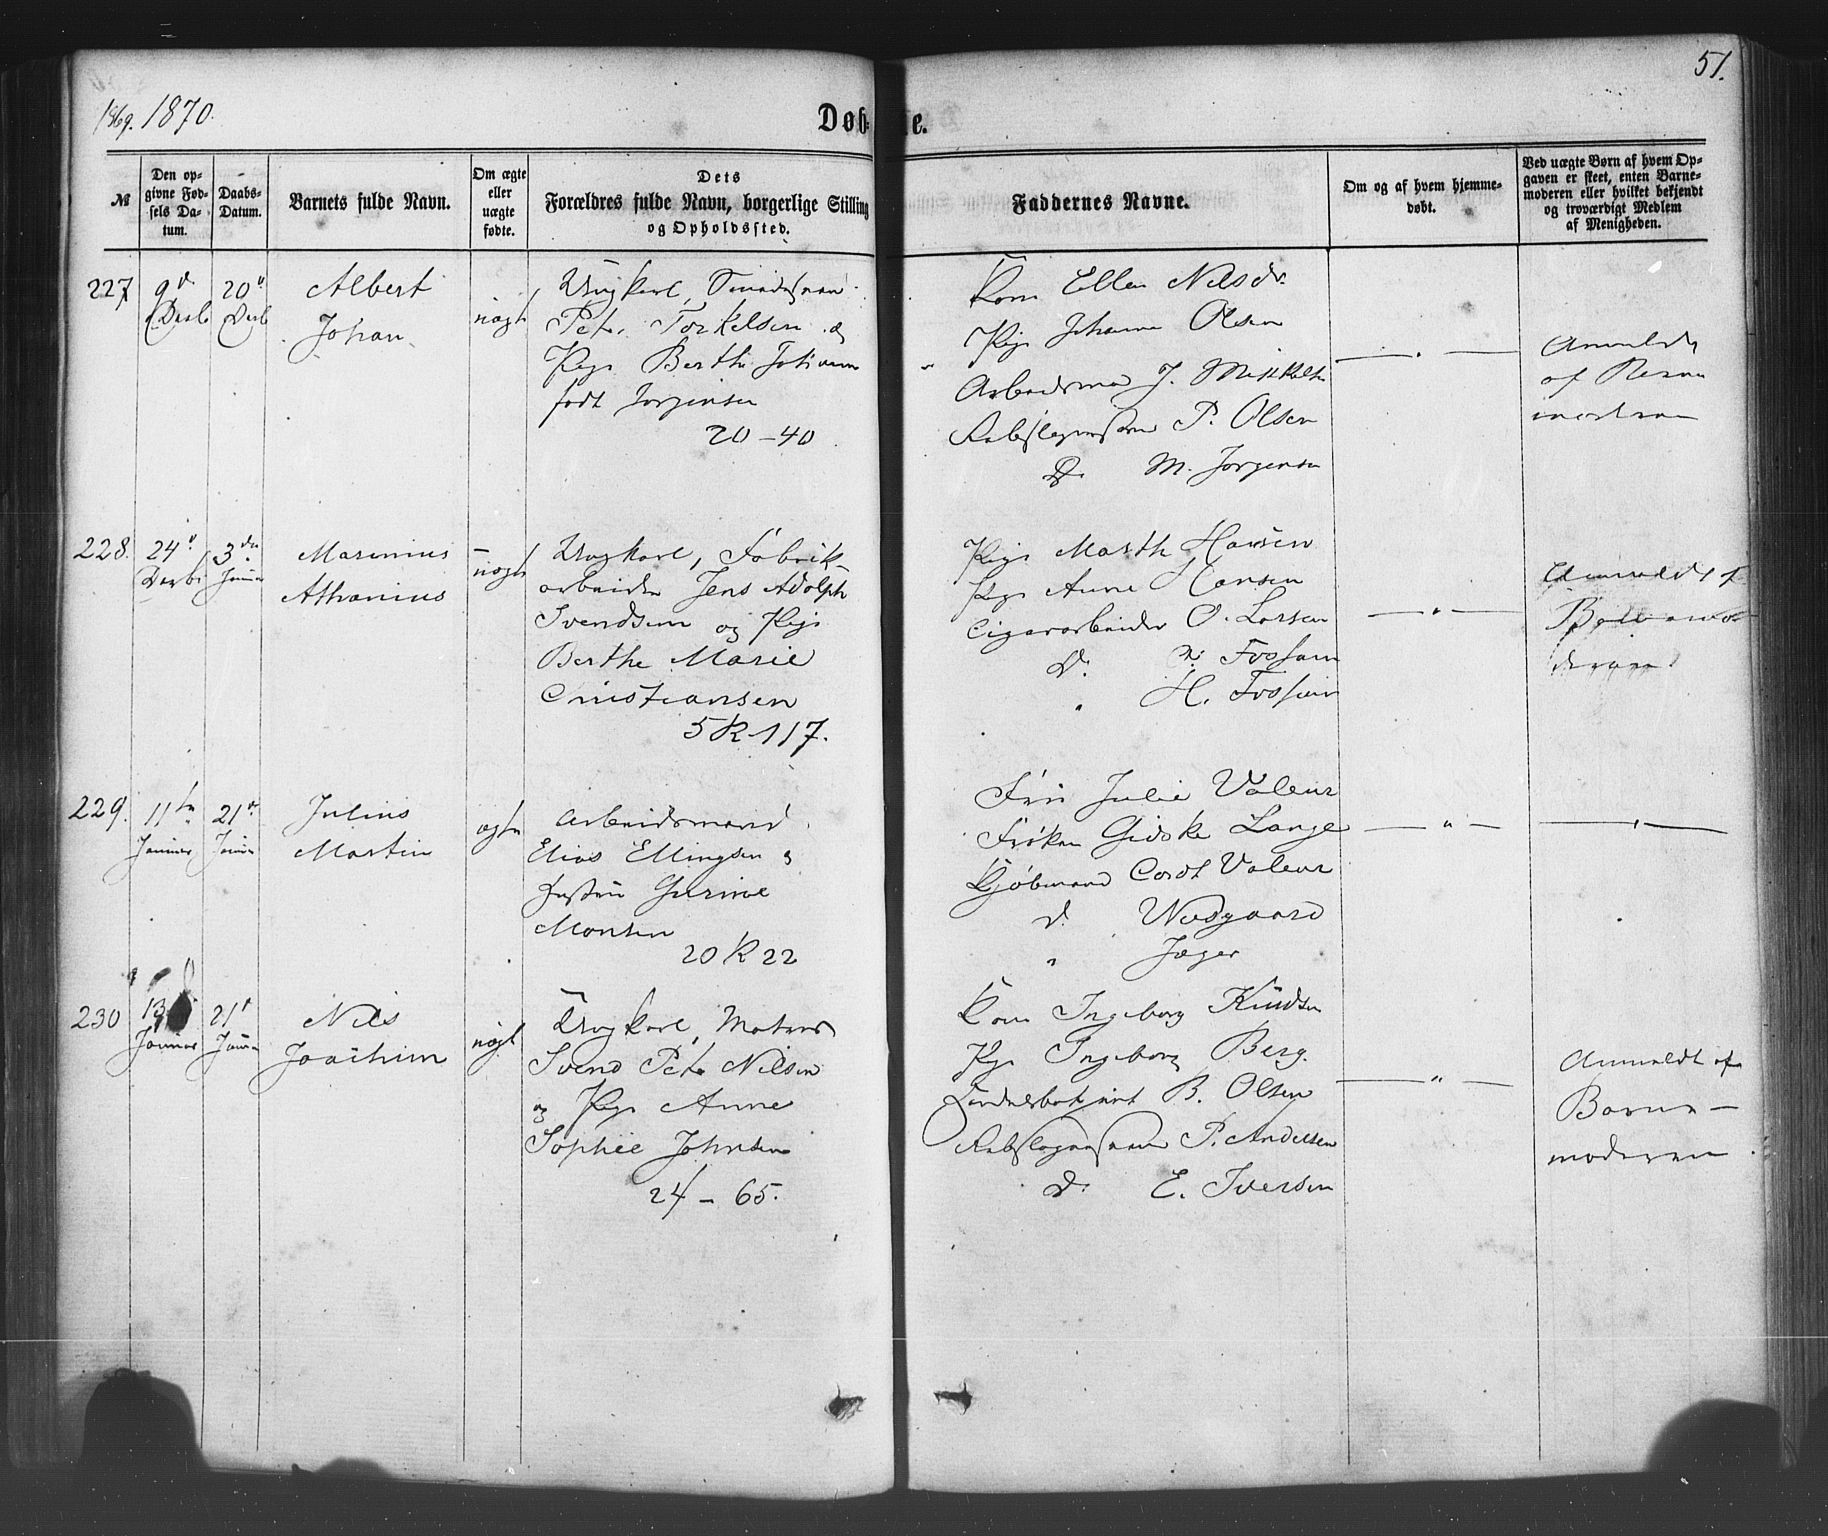 51.
1869. 1870.
Døbte.
№
Den opgivne Fødsels Datum.
Daabs-Datum.
Barnets fulde Navn.
Om ægte eller uægte fødte.
Dets Forældres fulde Navn, borgerlige Stilling og Opholdssted.
Faddernes Navne.
Om og af hvem hjemmedøbt.
Ved uægte Børn af hvem Opgaven er skeet, enten Barnemoderen eller hvilket bekjendt og troværdigt Medlem af Menigheden.
227
9d
Decb
20d
Decb
Albert
Johan
uægt
Ungkarl,
Peter Torkelsen &
Pige Berthe Johanne
født Jørgensen
20-40
Kone Ellen Nilsdr
Pige Johanne Olsen
Arbeidsmand J. Mikkelsen
Rebslagersvend P. Olsen
D. M. Jørgensen
Anmeldt
af Barne
moderen
228.
24d
Decb
3die
Januar
Marinius
Athanius
uægt
Ungkarl, Fabrik-
arbeider Jens Adolph
Svendsen og Pige
Berthe Marie
Cristiansen
5 R 117.
Pige Marth Hansen
Pige Anne Hansen
Cigararbeider O. Larsen
D. Fossum
" H. Fossum
Anmeldt af
Barnemo-
deren
229.
11te
Januar
21d
Januar
Julius
Martin
ægte
Arbeidsmand
Elias Ellingsen &
Hustru Gurine
Monsen
20 R 22
Fru Julie Valeur
Frøken Gidske Lange
Kjøbmand Cordt Valeur
D. Nedgaard
" Jæger
230
13
Januar
21d
Januar
Nils
Joachim
uægt
Ungkarl, Matros
Svend Peter Nilsen
og Pige Anne
Sophie Johnsen
24 - 65.
Kone Ingeborg Knudsen
Pige Ingeborg Berg.
B. Olsen
Rebslagersvend P. Andersen
D. E. Iversen
Anmeldt af
Barne-
moderen.